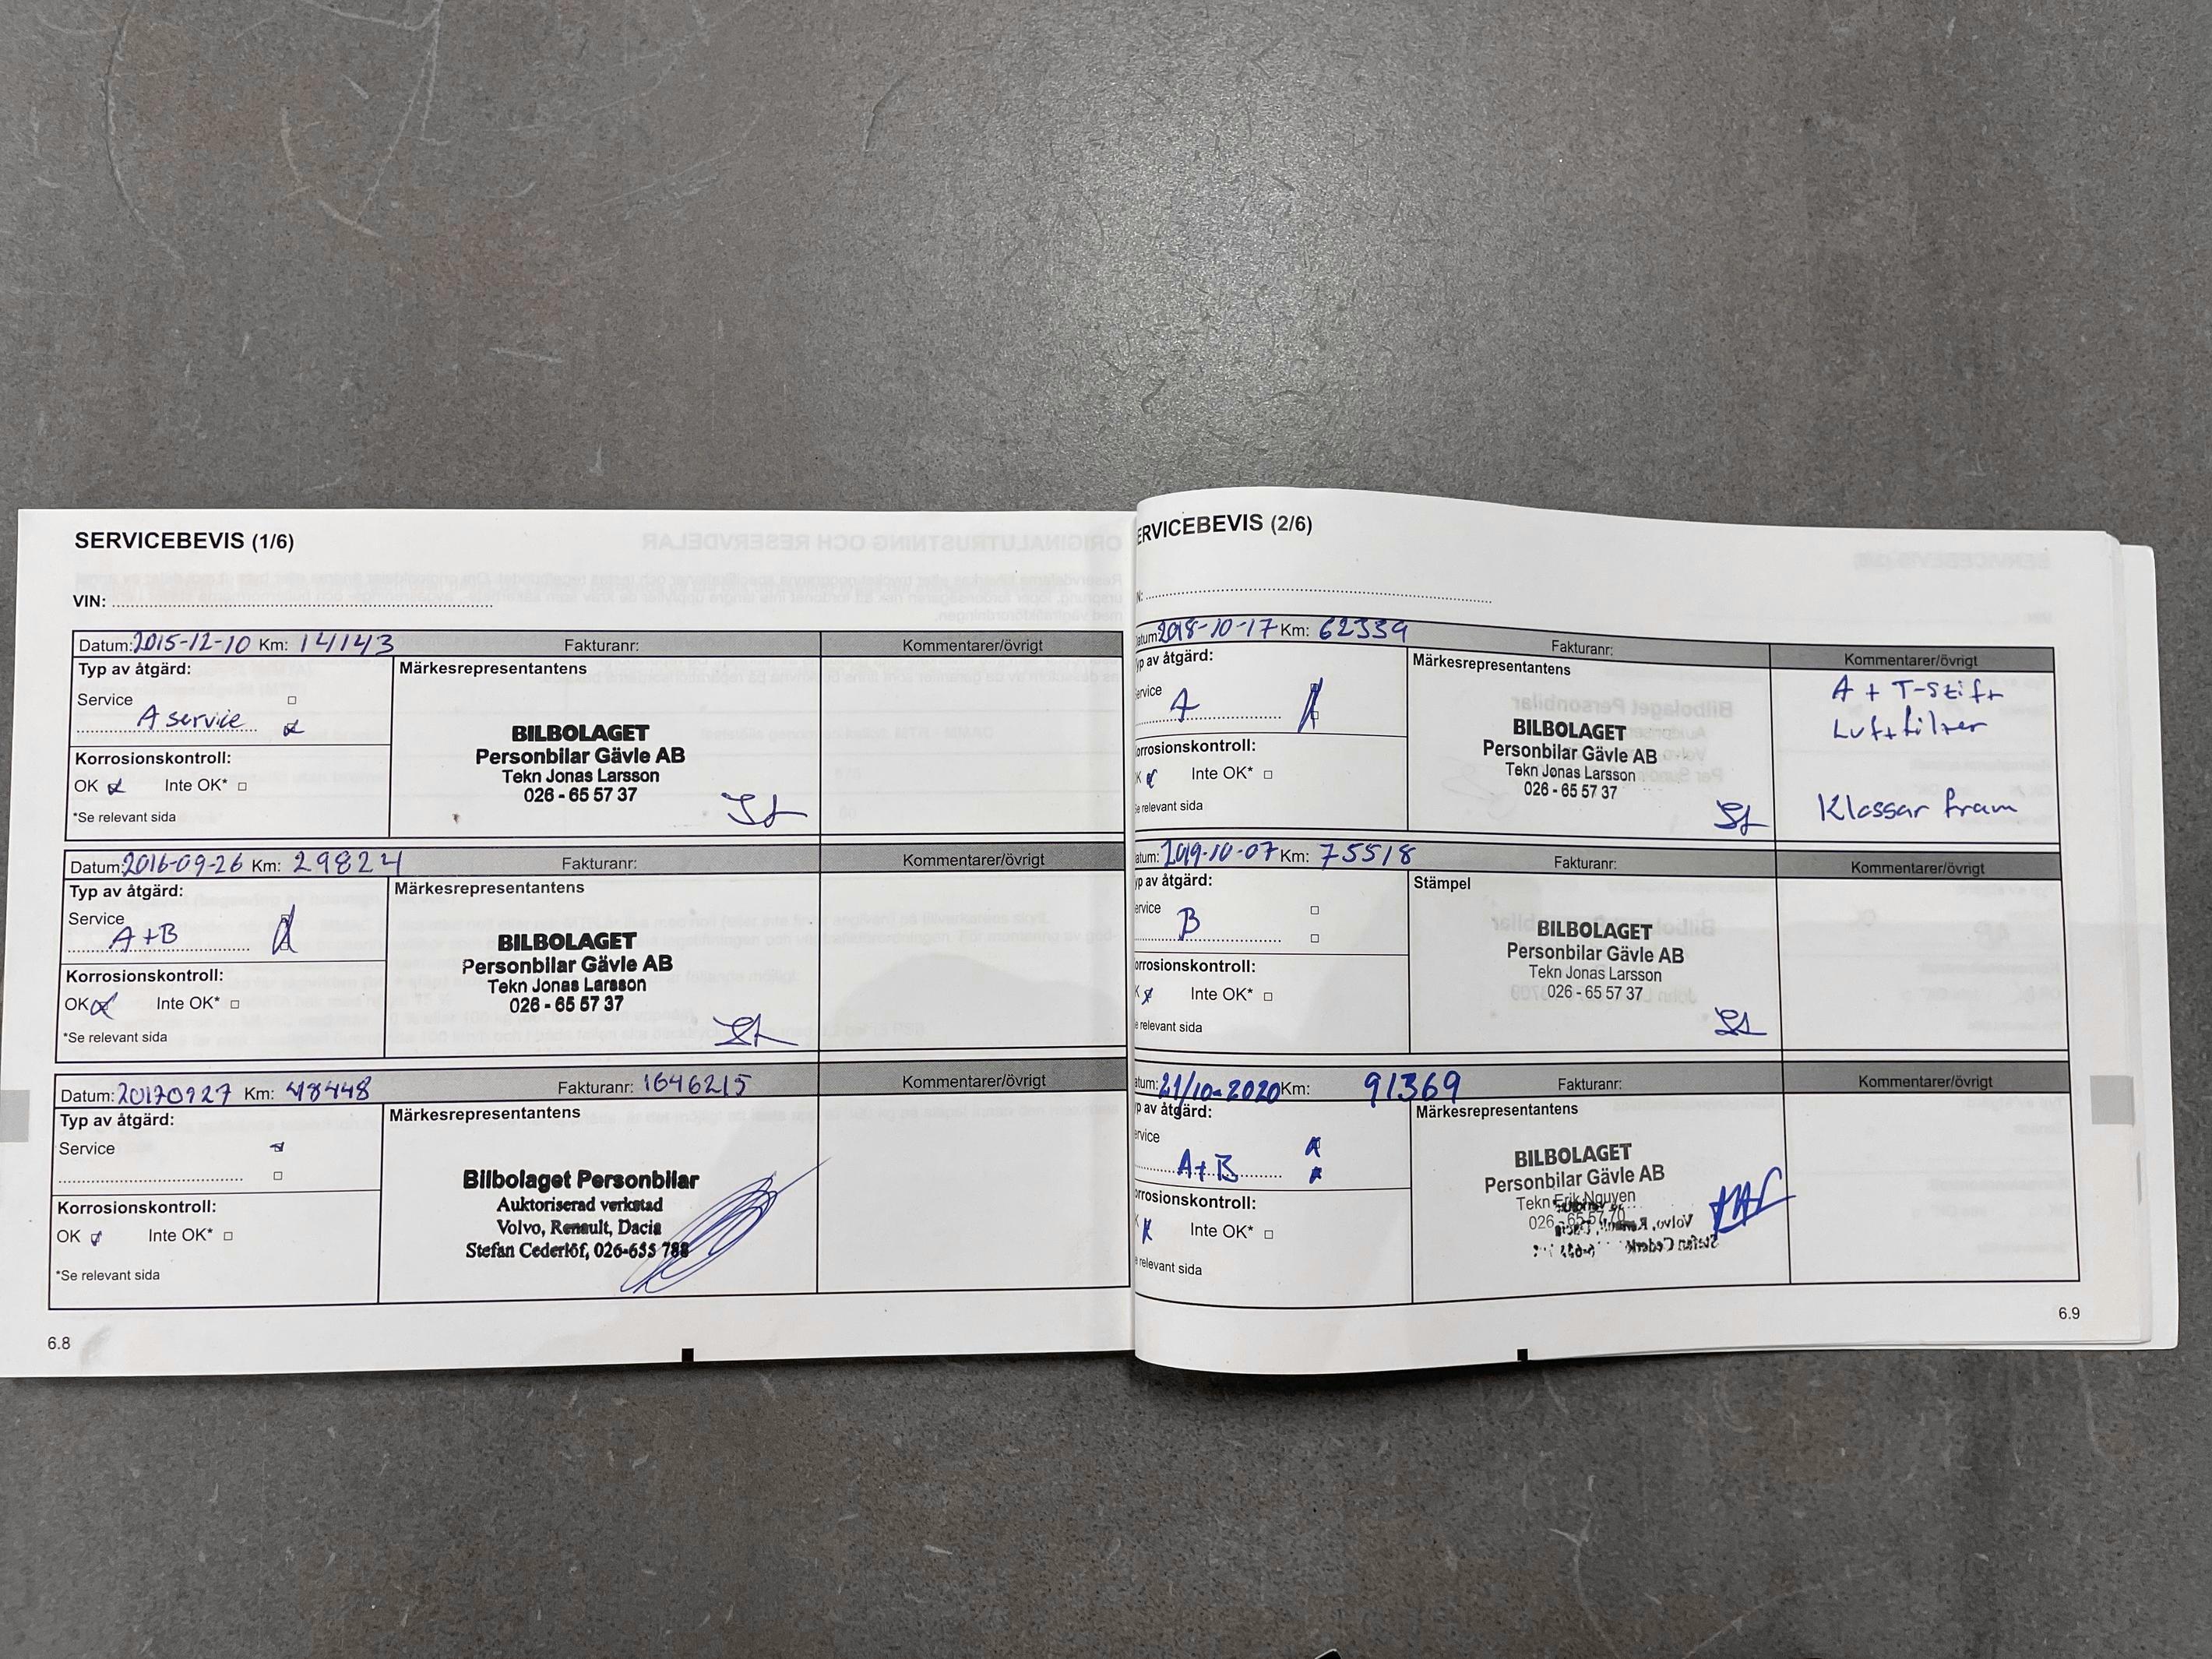 SERVICEBEVIS (1/6)
VIN:
Datum: 2015-12-10 Km: 14143 Fakturanr: Kommentarer/övrigt
Typ av åtgärd: Märkesrepresentantens
Service
A service
BILBOLAGET
Personbilar Gävle AB
Tekn Jonas Larsson
026 - 65 57 37
Korrosionskontroll:
OK Inte OK*
*Se relevant sida
Datum: 2016-09-26 Km: 29824 Fakturanr: Kommentarer/övrigt
Typ av åtgärd: Märkesrepresentantens
Service
A+B
BILBOLAGET
Personbilar Gävle AB
Tekn Jonas Larsson
026 - 65 57 37
Korrosionskontroll:
OK Inte OK*
*Se relevant sida
Datum: 20170927 Km: 48448 Fakturanr: 1646215 Kommentarer/övrigt
Typ av åtgärd: Märkesrepresentantens
Service
Bilbolaget Personbilar
Auktoriserad verkstad
Volvo, Renault, Dacia
Stefan Cederlöf, 026-655 788
Korrosionskontroll:
OK Inte OK*
*Se relevant sida
6.8
ERVICEBEVIS (2/6)
N:
atum: 2018-10-17 Km: 62339 Fakturanr: Kommentarer/övrigt
yp av åtgärd: Märkesrepresentantens
ervice
A
BILBOLAGET
Personbilar Gävle AB
Tekn Jonas Larsson
026 - 65 57 37
A + T-stift
Luftfilter
Klossar fram
orrosionskontroll:
K Inte OK*
e relevant sida
atum: 2019-10-07 Km: 75518 Fakturanr: Kommentarer/övrigt
yp av åtgärd: Stämpel
ervice
B
BILBOLAGET
Personbilar Gävle AB
Tekn Jonas Larsson
026 - 65 57 37
orrosionskontroll:
K Inte OK*
e relevant sida
atum: 21/10-2020 Km: 91369 Fakturanr: Kommentarer/övrigt
p av åtgärd: Märkesrepresentantens
ervice
A+B
BILBOLAGET
Personbilar Gävle AB
Tekn Erik Nguyen
026 - 65 57 70
orrosionskontroll:
K Inte OK*
e relevant sida
6.9